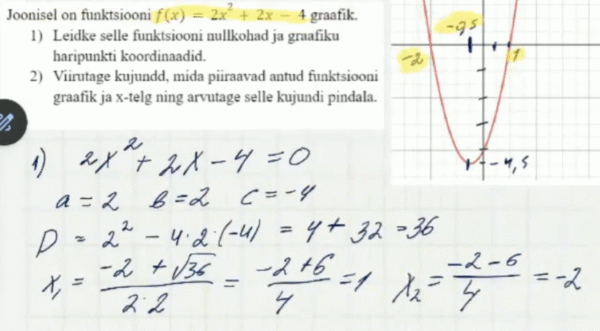 Joonisel on funktsiooni f(x) = 2x² + 2x − 4 graafik.
1) Leidke selle funktsiooni nullkohad ja graafiku
haripunkti koordinaadid.
2) Viirutage kujundd, mida piiraavad antud funktsiooni
graafik ja x-telg ning arvutage selle kujundi pindala.
-0,5
-2
1
-4,5
1) 2x² + 2x - 4 = 0
a = 2 b = 2 c = -4
D = 2² - 4·2·(-4) = 4 + 32 = 36
x₁ = (-2 + √36)/(2·2) = (-2+6)/4 = 1 x₂ = (-2-6)/4 = -2